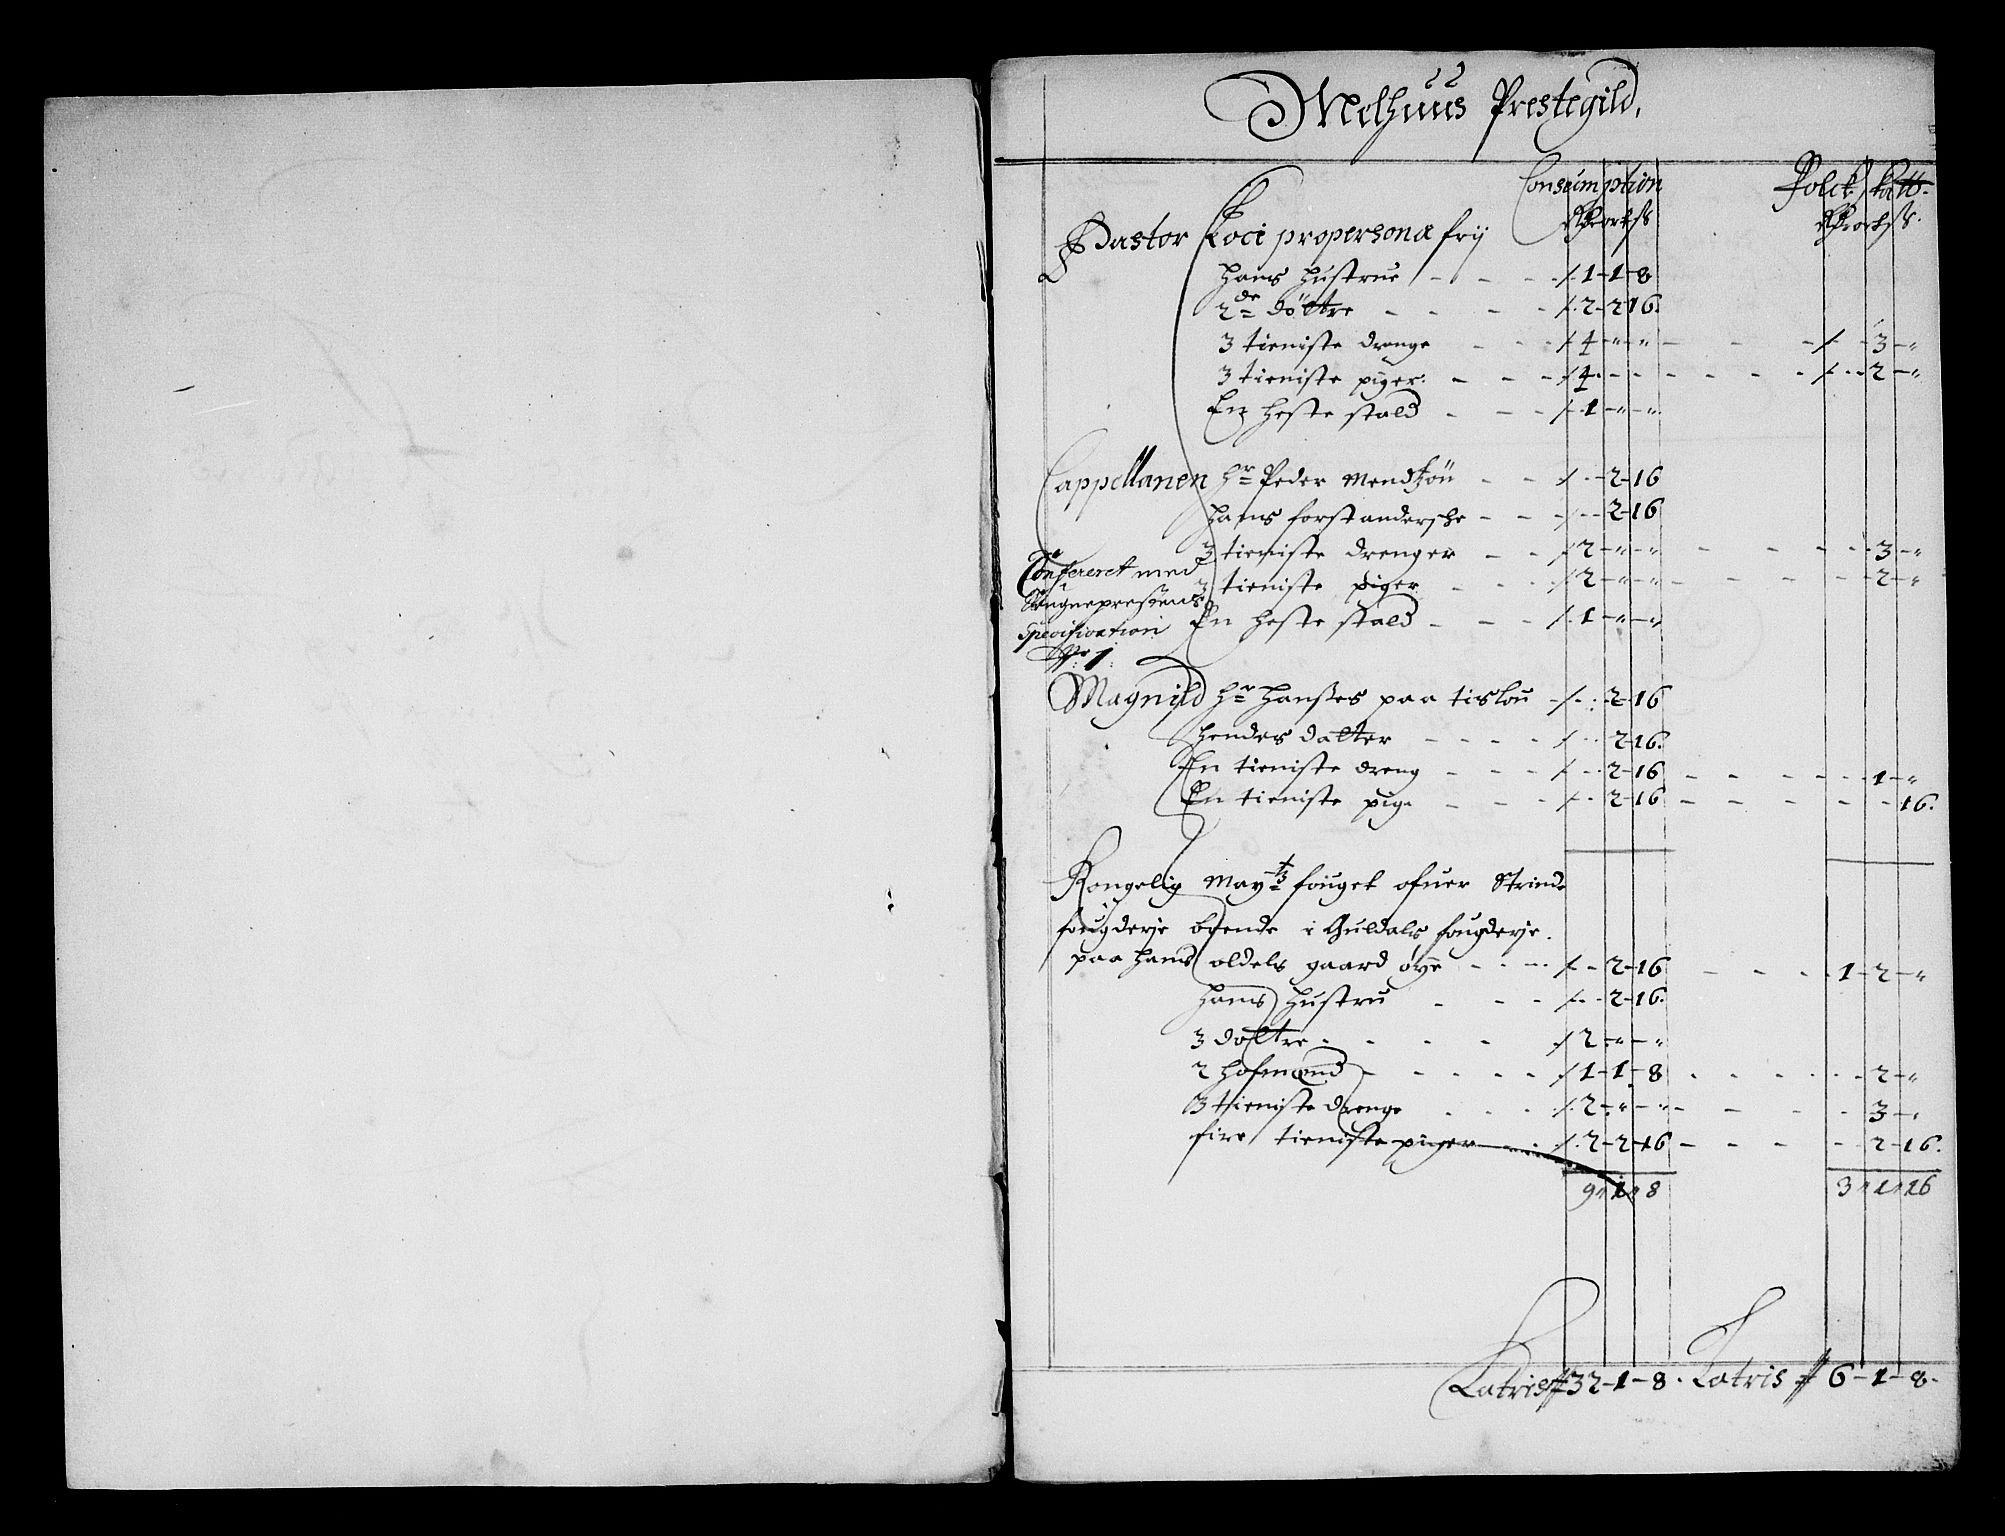 Melhuus Prestegild,
Consumption Folck Skatt.
Rdr ort ß Rdr ort ß.
Pastor Loci propersona frij
Hans Hustrue - - - 1-1-8
2de Döttre - - - 2-2-16.
3 tieniste drenge - - - 4-"-" - - - 3-"
3 tieniste piger. - - - 4 - - - - 2-"
En heste stald - - - 1-"-"
Cappellanen Hr Peder Mendtzön - - 2-16
Hans forstandersche - - - 2-16
3 tieniste drenger - - 2-"-" - - - 3-"
3 tieniste piger - - - 2-"-" - - - 2-"
En heste stald - - - 1-"-"
Confereret med
Sougneprestens
Specification
No 1.
Magnild Hr Hanßes paa tislou - 2-16
hendes datter - - - - 2-16.
En tieniste dreng - - - 2-16 - - - 1-"
En tieniste pige - - - 2-16 - - - -16.
Kongelig Maytz fouget ofuer Strinde
fougderje boende i Guldals fougderje.
paa hans oldels gaard öye - - - 2-16 - - - 1-2-"
Hans Hustru - - - 2-16.
3 dattre - - - - 2-"-"
2 hofmend - - - - 1-1-8 - - - 2-"
3 tieniste drenge - - - 2-"-" - - - 3-"
fire tieniste piger - - 2-2-16 - - - 2-16.
9"1"8 3"1"16
Latris 32-1-8. Latris 6-1-8.